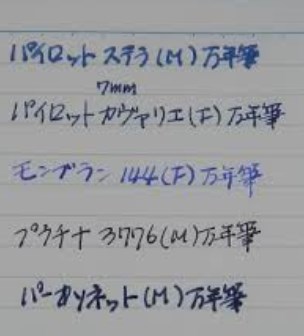 パイロット ステラ(M)万年筆
7mm
パイロット カヴァリエ(F)万年筆
モンブラン 144(F)万年筆
プラチナ 3776(M)万年筆
パーカソネット(M)万年筆